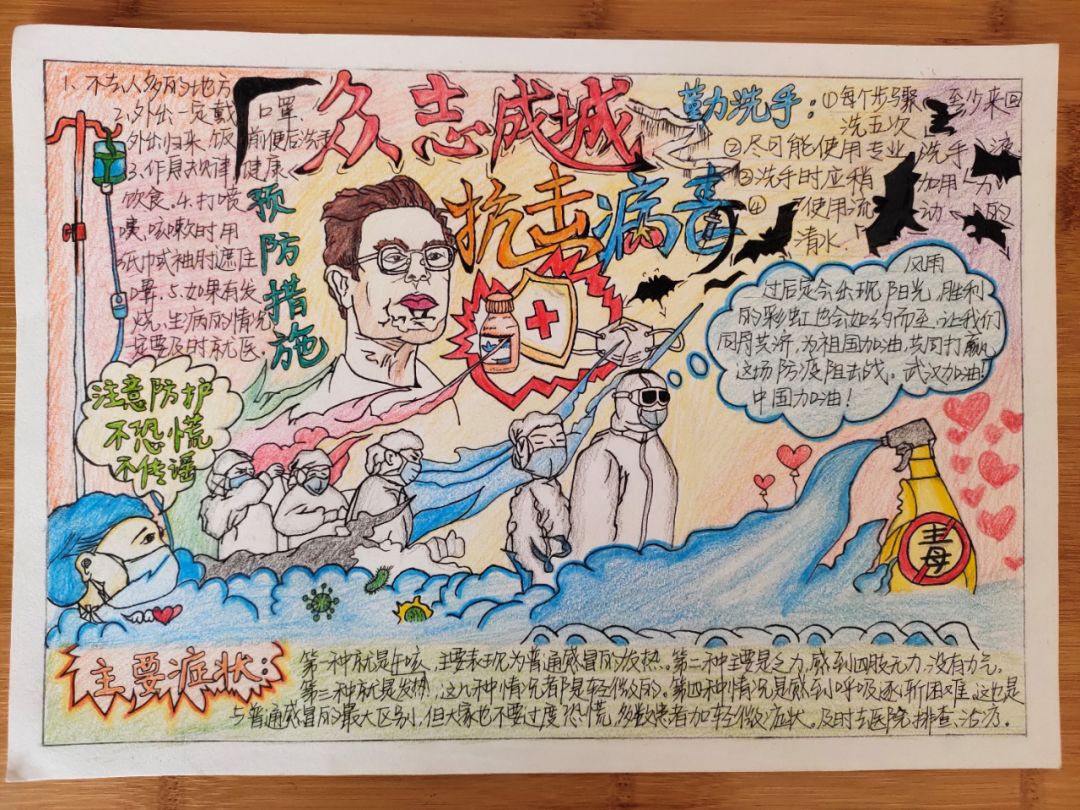 众志成城
抗击病毒
预防措施
1、不去人多的地方
2、外出一定戴口罩.
外出归来、饭前便后洗手
3、作息规律、健康
饮食.4.打喷
嚏、咳嗽时用
纸巾或袖肘遮住
口罩.5.如果有发
烧、生病的情况
一定要及时就医.
勤洗手：①每个步骤至少来回
洗五次
②尽可能使用专业洗手液
③洗手时应稍加用力
④使用流动的
清水.
风雨
过后定会出现阳光，胜利
的彩虹也会如约而至.让我们
同舟共济，为祖国加油，共同打赢
这场防疫阻击战。武汉加油！
中国加油！
注意防护
不恐慌
不传谣
毒
主要症状：
第一种就是干咳，主要表现为普通感冒的发热。第二种主要是乏力，感到四肢无力，没有力气，
第三种就是发热，这几种情况都是轻微的。第四种情况是感到呼吸逐渐困难，这也是
与普通感冒的最大区别，但大家也不要过度恐慌，多数患者加轻微症状。及时去医院排查、治疗。